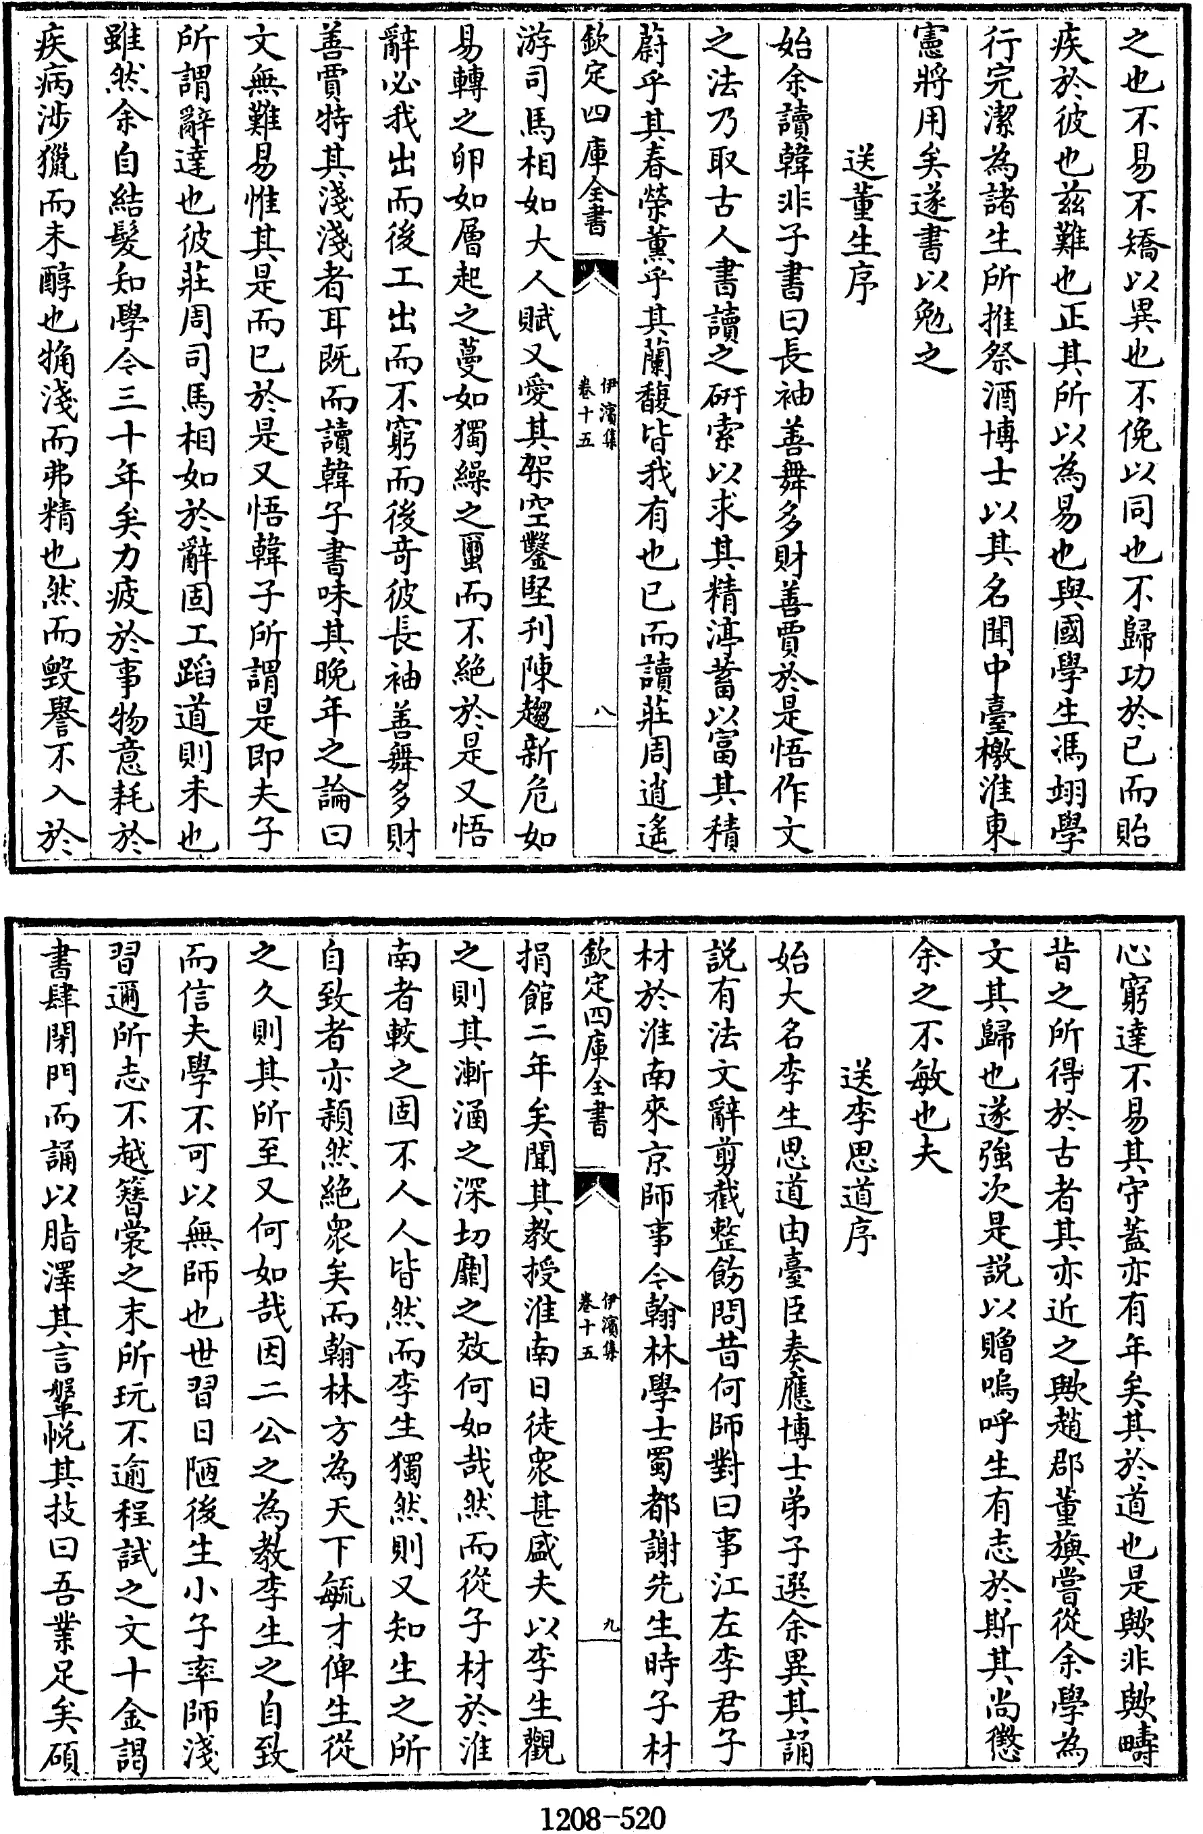 之也不易不矯以異也不俛以同也不歸功於已而貽
疾於彼也兹難也正其所以為易也與國學生馮翊學
行完潔為諸生所推祭酒博士以其名聞中臺檄淮東
憲將用矣遂書以勉之
送董生序
始余讀韓非子書曰長袖善舞多財善賈於是悟作文
之法乃取古人書讀之硏索以求其精渟蓄以富其積
蔚乎其春榮薫乎其蘭馥皆我有也已而讀莊周逍遙
欽定四庫全書
伊濱集
卷十五
八
游司馬相如大人賦又愛其架空鑿堅刋陳趨新危如
易轉之卵如層起之蔓如獨繰之蠒而不絶於是又悟
辭必我出而後工出而不窮而後竒彼長袖善舞多財
善賈特其淺淺者耳既而讀韓子書味其晚年之論曰
文無難易惟其是而已於是又悟韓子所謂是即夫子
所謂辭達也彼莊周司馬相如於辭固工蹈道則未也
雖然余自結髮知學今三十年矣力疲於事物意耗於
疾病涉獵而未醇也觕淺而弗精也然而毀譽不入於
心窮達不易其守蓋亦有年矣其於道也是歟非歟疇
昔之所得於古者其亦近之歟趙郡董旟嘗從余學為
文其歸也遂強次是説以贈嗚呼生有志於斯其尚懲
余之不敏也夫
送李思道序
始大名李生思道由臺臣奏應博士弟子選余異其誦
説有法文辭剪截整飭問昔何師對曰事江左李君子
材於淮南來京師事今翰林學士蜀都謝先生時子材
欽定四庫全書
伊濱集
卷十五
九
捐館二年矣聞其教授淮南日徒衆甚盛夫以李生觀
之則其漸涵之深切劘之效何如哉然而從子材於淮
南者較之固不人人皆然而李生獨然則又知生之所
自致者亦頴然絶衆矣而翰林方為天下毓才俾生從
之久則其所至又何如哉因二公之為教李生之自致
而信夫學不可以無師也世習日陋後生小子率師淺
習邇所志不越簪裳之末所玩不逾程試之文十金謁
書肆閉門而誦以脂澤其言鞶帨其技曰吾業足矣碩
1208-520